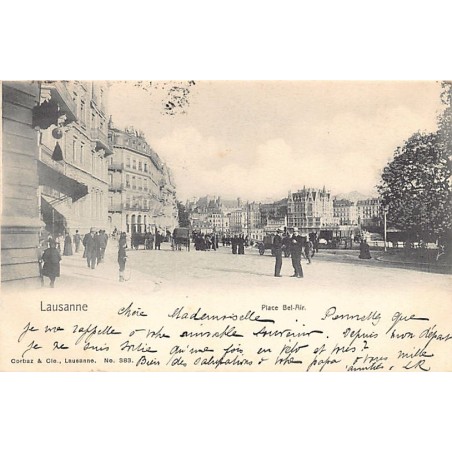 Lausanne
Place Bel-Air.
Chère Mademoiselle Permettez que
je me rappelle à votre aimable souvenir. Depuis mon départ
je ne suis sortie qu'une fois en vélo et vous?
Bien des salutations à votre papa à vous mille
amitiés. LR
Corbaz & Cie., Lausanne. No. 383.